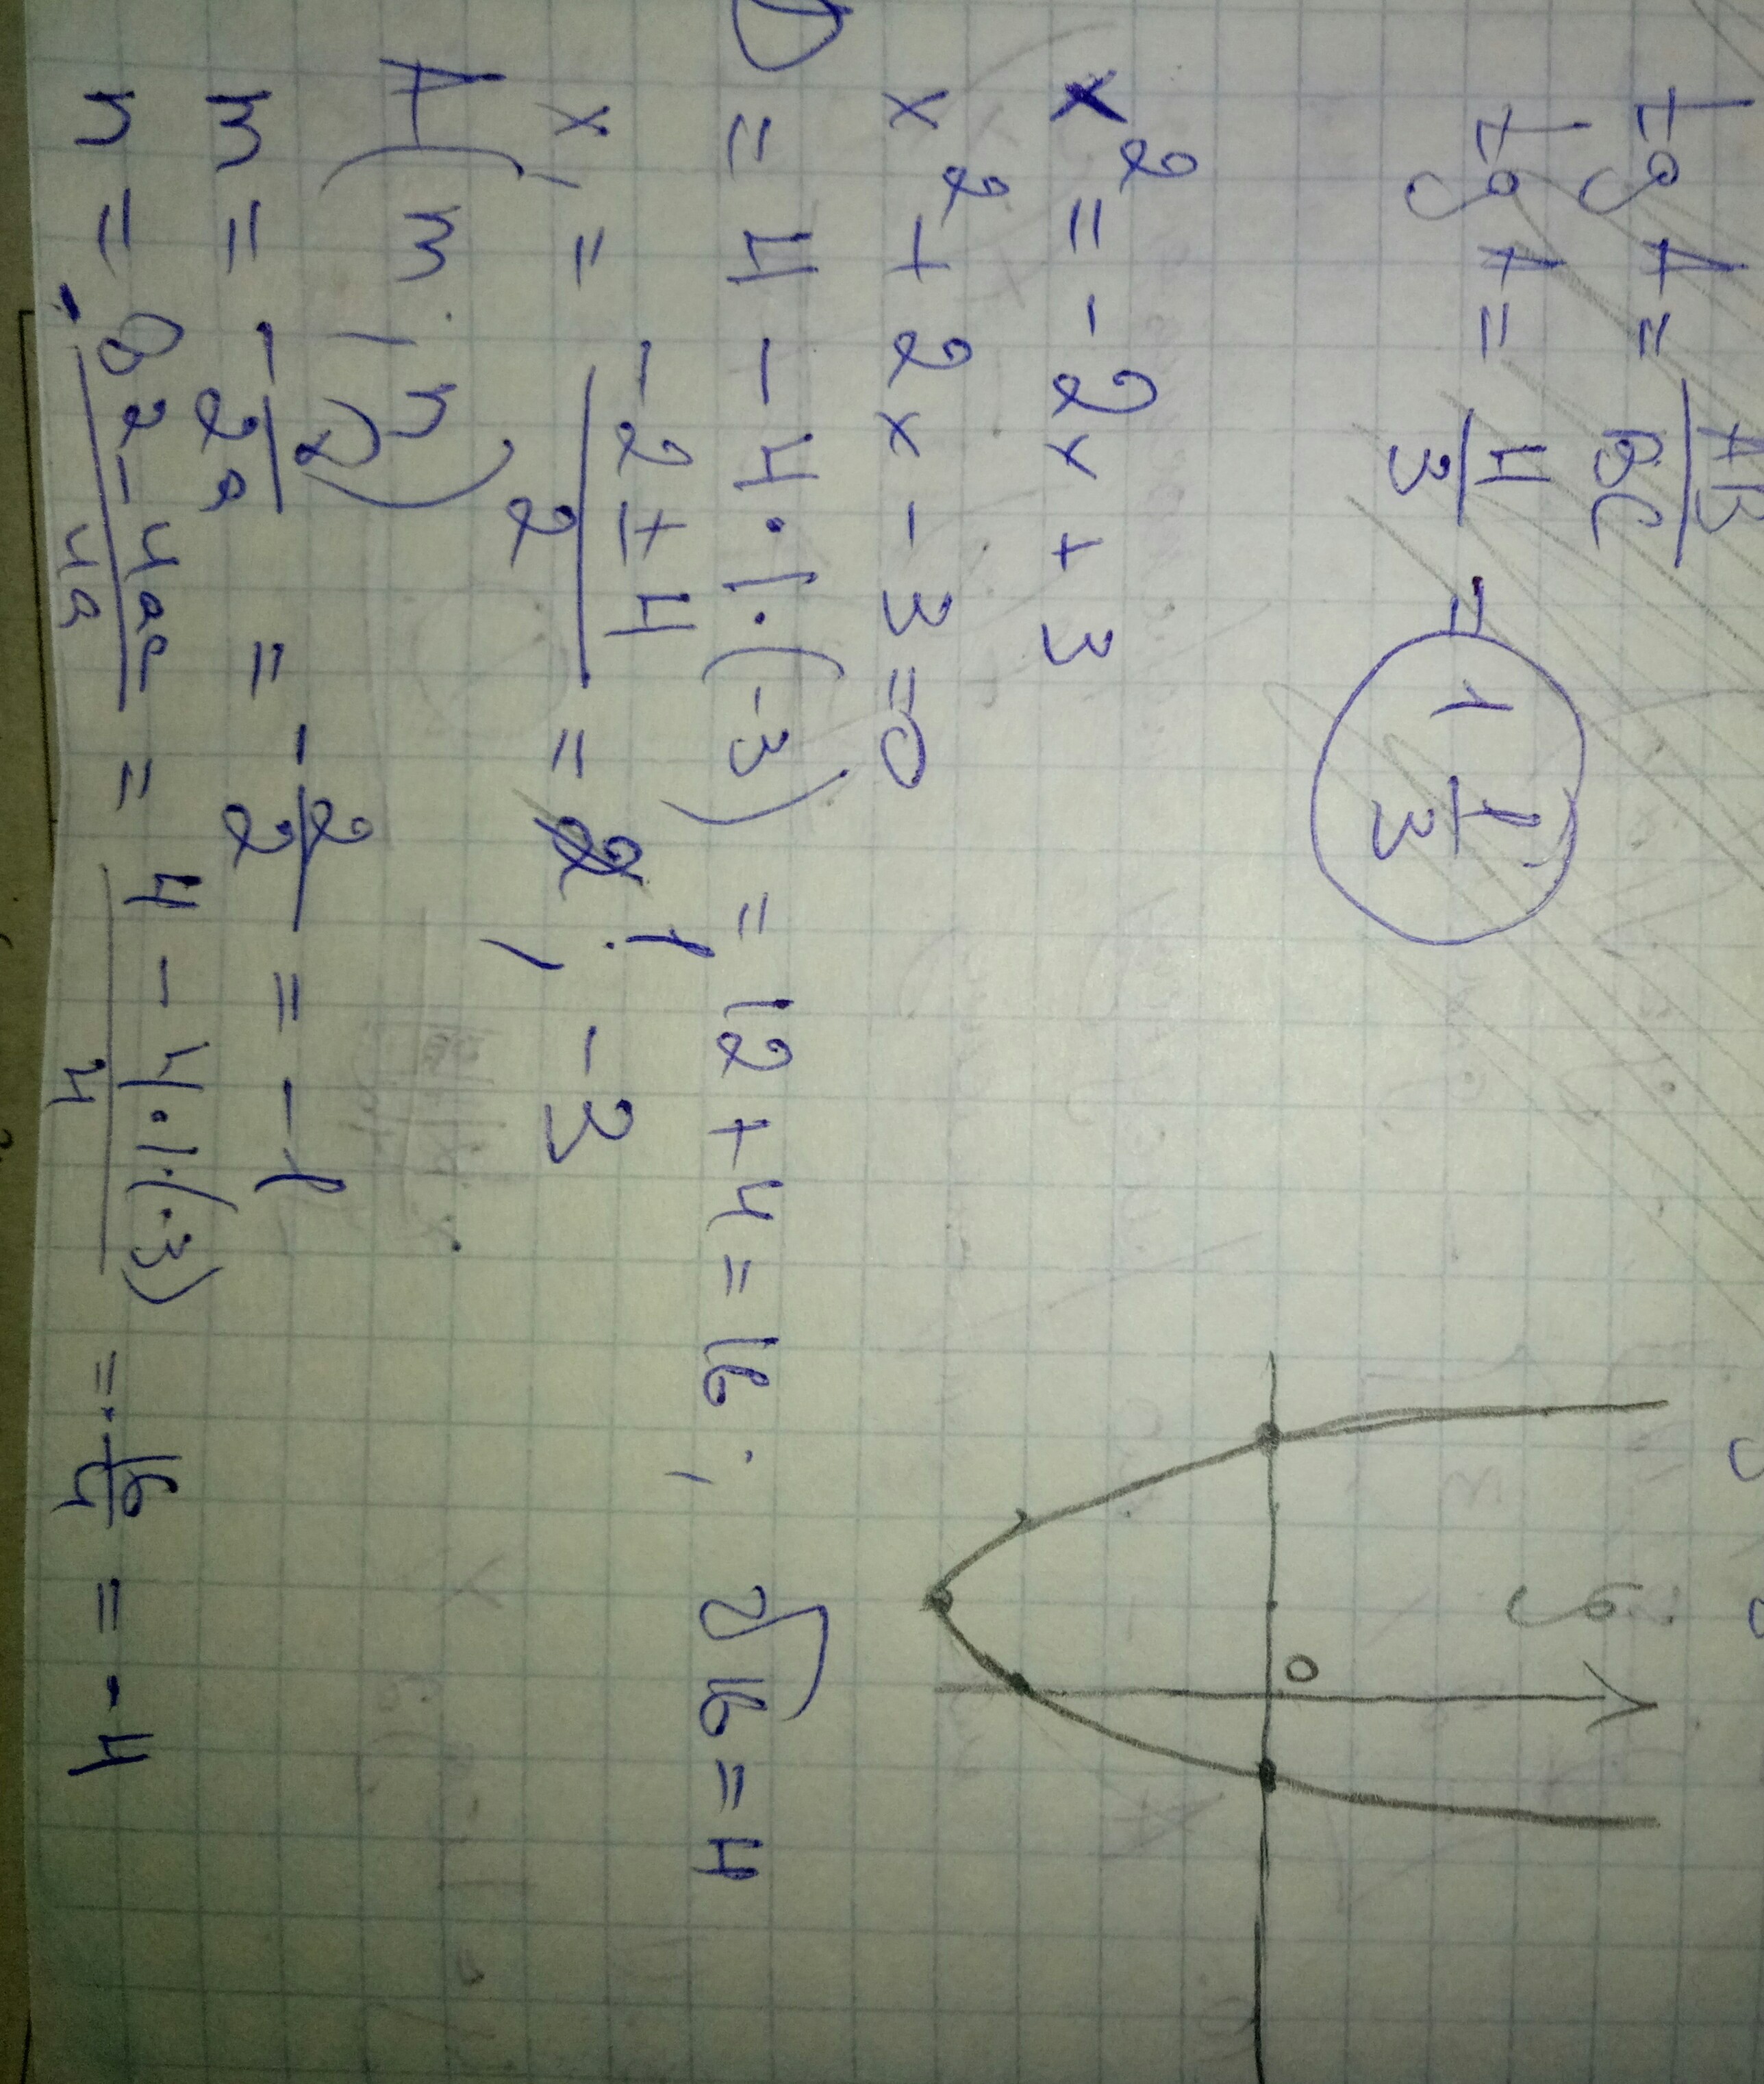 tg A = AB/BC
tg A = 4/3 = 1 1/3
x² = -2x + 3
x² + 2x - 3 = 0
D = 4 - 4·1·(-3) = 12 + 4 = 16; √16 = 4
x, = (-2 ± 4)/2 = 1; -3
A(m; n)
m = -в/2a = -2/2 = -1
n = -(в² - 4ac)/4a = (4 - 4·1·(-3))/4 = -16/4 = -4
0